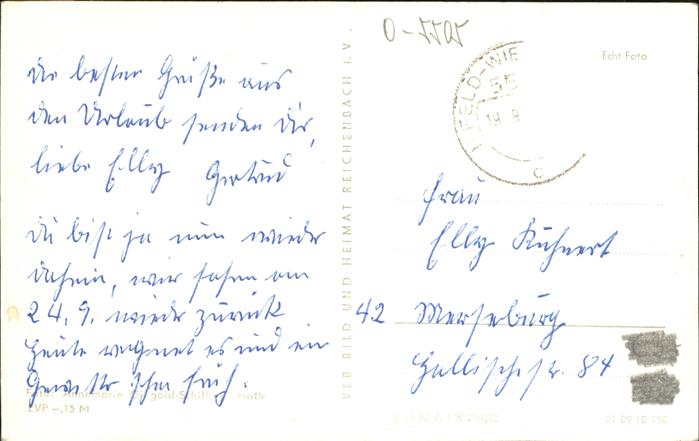 O-5505
Die besten Grüße aus
den Urlaub senden Dir,
liebe Elly Gertrud
Du bist ja nun wieder
daheim, wir fahren am
24. 9. wieder zurück
Heute regnet es und ein
Gewitter schon früh.
Foto: Annemarie
EVP -,15 M
VEB BILD UND HEIMAT REICHENBACH I. V.
Echt Foto
ILFELD-WIE
55
19 9
c
Frau
Elly Kühnert
42 Merseburg
Hallische str. 84
01 09 10 150